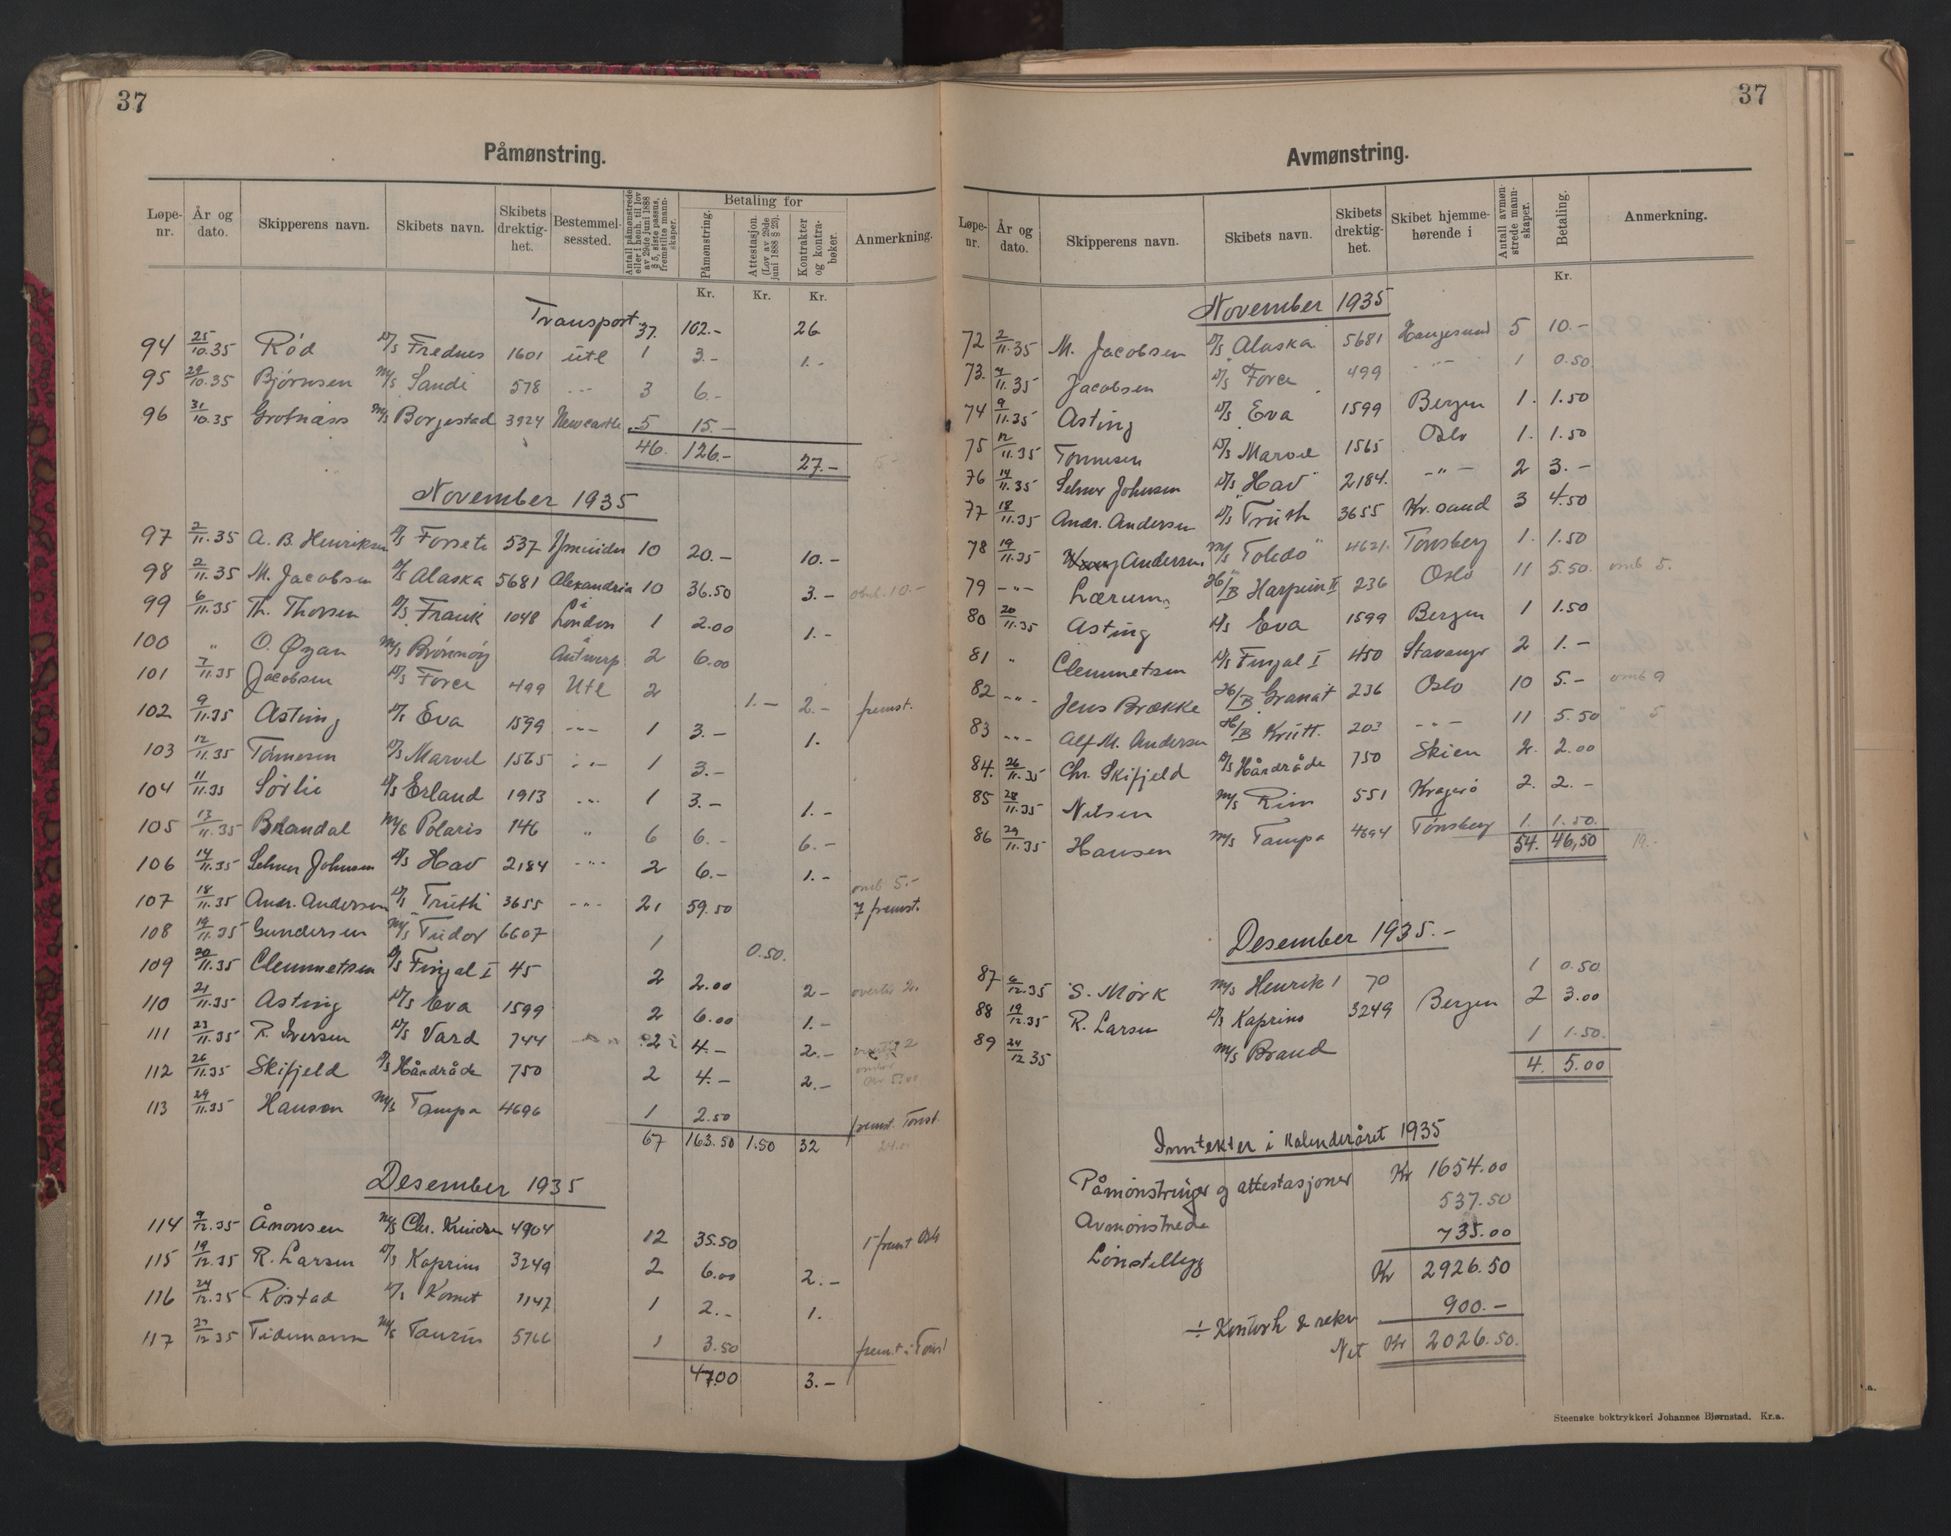 37
Påmønstring.
Løpenr. | År og dato. | Skipperens navn. | Skibets navn. | Skibets drektighet. | Bestemmelsessted. | Antall påmønstrede eller i henh. til lov av 29de juni 1888 § 5, siste passus, fremstilte mannskaper. | Betaling for | Påmønstring. | Attestasjon. (Lov av 29de juni 1888 § 23). | Kontrakter og kontrabøker. | Anmerkning.
Kr. Kr. Kr.
Transport 37. 102.- 26
94 25/10.35 Rød D/s Frednes 1601 utl 1 3.- 1.-
95 29/10.35 Bjørnsen M/s Sandi 578 -"- 3 6.-
96 31/10.35 Grotnæss M/s Borgestad 3924 Newcastle 5 15.-
46. 126.- 27.- 5-
November 1935
97 2/11.35 A. B. Henriksen D/s Forsete 537 Ijmuiden 10 20.- 10.-
98 2/11.35 M. Jacobsen D/s Alaska 5681 Alexandria 10 36.50 3.- 10.-
99 6/11.35 Th. Thorsen D/s Frank 1048 London 1 2.00 1.-
100 " O. Øyan M/s Brønnøy Antwerp 2 6.00
101 7/11.35 Jacobsen D/s Force 499 Utl 2 1.- 2.- fremst.
102 9/11.35 Asting D/s Eva 1599 -"- 1 3.- 1.
103 12/11.35 Tønnesen D/s Marvel 1565 -"- 1 3.-
104 11/11.35 Sørlie D/s Erland 1913 -"- 1 3.- 1.-
105 13/11.35 Brandal M/s Polaris 146 " 6 6.- 6.-
106 14/11.35 Selmer Johnsen D/s Hav 2184 -"- 2 6.- 1.-
107 18/11.35 Andr. Andersen D/s Truth 3655 -"- 21 59.50 omb 5.- 7 fremst.
108 19/11.35 Gundersen M/s Tudor 6607 1 0.50.
109 20/11.35 Clemmetsen D/s Finjal I 45 2 2.00 2- overtid 2.
110 21/11.35 Asting D/s Eva 1599 2 6.00 1.-
111 23/11.35 R. Iversen D/s Vard 744 2 4.- 2.-
112 26/11.35 Skifjeld D/s Hårdråde 750 2 4.- 2.-
113 29/11.35 Hanson M/s Tampa 4696 1 2.50 fremst. Tønst.
67 163.50 1.50 32 24.00
Desember 1935
114 9/12.35 Ånonsen M/s Chr. Knudsen 4904 12 35.50 1 fremst Oslo
115 19/12.35 R. Larsen D/s Kaprino 3249 2 6.00 2.-
116 24/12.35 Røstad D/s Komet 1147 1 2.- 1.
117 27/12.35 Tidemann M/s Taurus 5766 1 3.50 fremst i Tønst
47.00 3.-
37
Avmønstring.
Løpenr. | År og dato. | Skipperens navn. | Skibets navn. | Skibets drektighet. | Skibet hjemmehørende i | Antall avmønstrede mannskaper. | Betaling. | Anmerkning.
Kr.
November 1935
72 2/11.35 M. Jacobsen D/s Alaska 5681 Haugesund 5 10.-
73. 7/11.35 Jacobsen D/s Force 499 -"- 1 0.50
74 9/11.35 Asting D/s Eva 1599 Bergen 1. 1.50
75 12/11.35 Tønnesen D/s Marvel 1565 Oslo 1. 1.50
76 14/11.35 Selmer Johnsen D/s "Hav" 2184. -"- 2 3.-
77 18/11.35 Andr. Andersen D/s "Truth 3655 Kr.sand 3 4.50
78 19/11.35 Andersen M/s "Toledo" 4621. Tønsberg 1. 1.50
79 -"- Lærum H/B Harpun II 236 Oslo 11 5.50. omb 5.
80 20/11.35 Asting D/s Eva 1599 Bergen 1 1.50
81 " Clemmetsen D/s Finjal I 450 Stavanger 2 1.-
82 -"- Jens Brække H/B Granat 236 Oslo 10 5.- omb 9
83 -"- Alf M. Andersen H/B Krutt. 203 -"- 11 5.50 " 5
84. 26/11.35 Chr. Skifjeld D/s Hårdråde 750 Skien 2. 2.00
85 28/11.35 Nilsen M/s Rim 551 Kragerø 2. 2.-
86 29/11.35 Hansen M/s Tampa 4694 Tønsberg 1. 1.50.
54. 46,50 19.-
Desember 1935.-
87 6/12.35 S. Mørk M/s Henrik 1 70 1 0.50
88 19/12.35 R. Larsen D/s Kaprino 3249 Bergen 2 3.00
89 24/12 35 M/s Brand 1 1.50.
4. 5.00
Inntekter i Kalenderåret 1935
Påmønstringer og attestasjoner Kr 1654.00
Avmønstrede 537.50
Lønstillegg 735.00
Kr 2926.50
÷ Kontorh & rekv 900.-
Net Kr 2026.50.
Steenske boktrykkeri Johannes Bjørnstad. Kr.a.